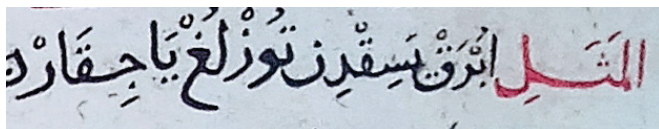 المَثَلِ اَبْرَقْ يَسِقْدِنْ تُوزْلُغْ يَاجِقَارْدِ